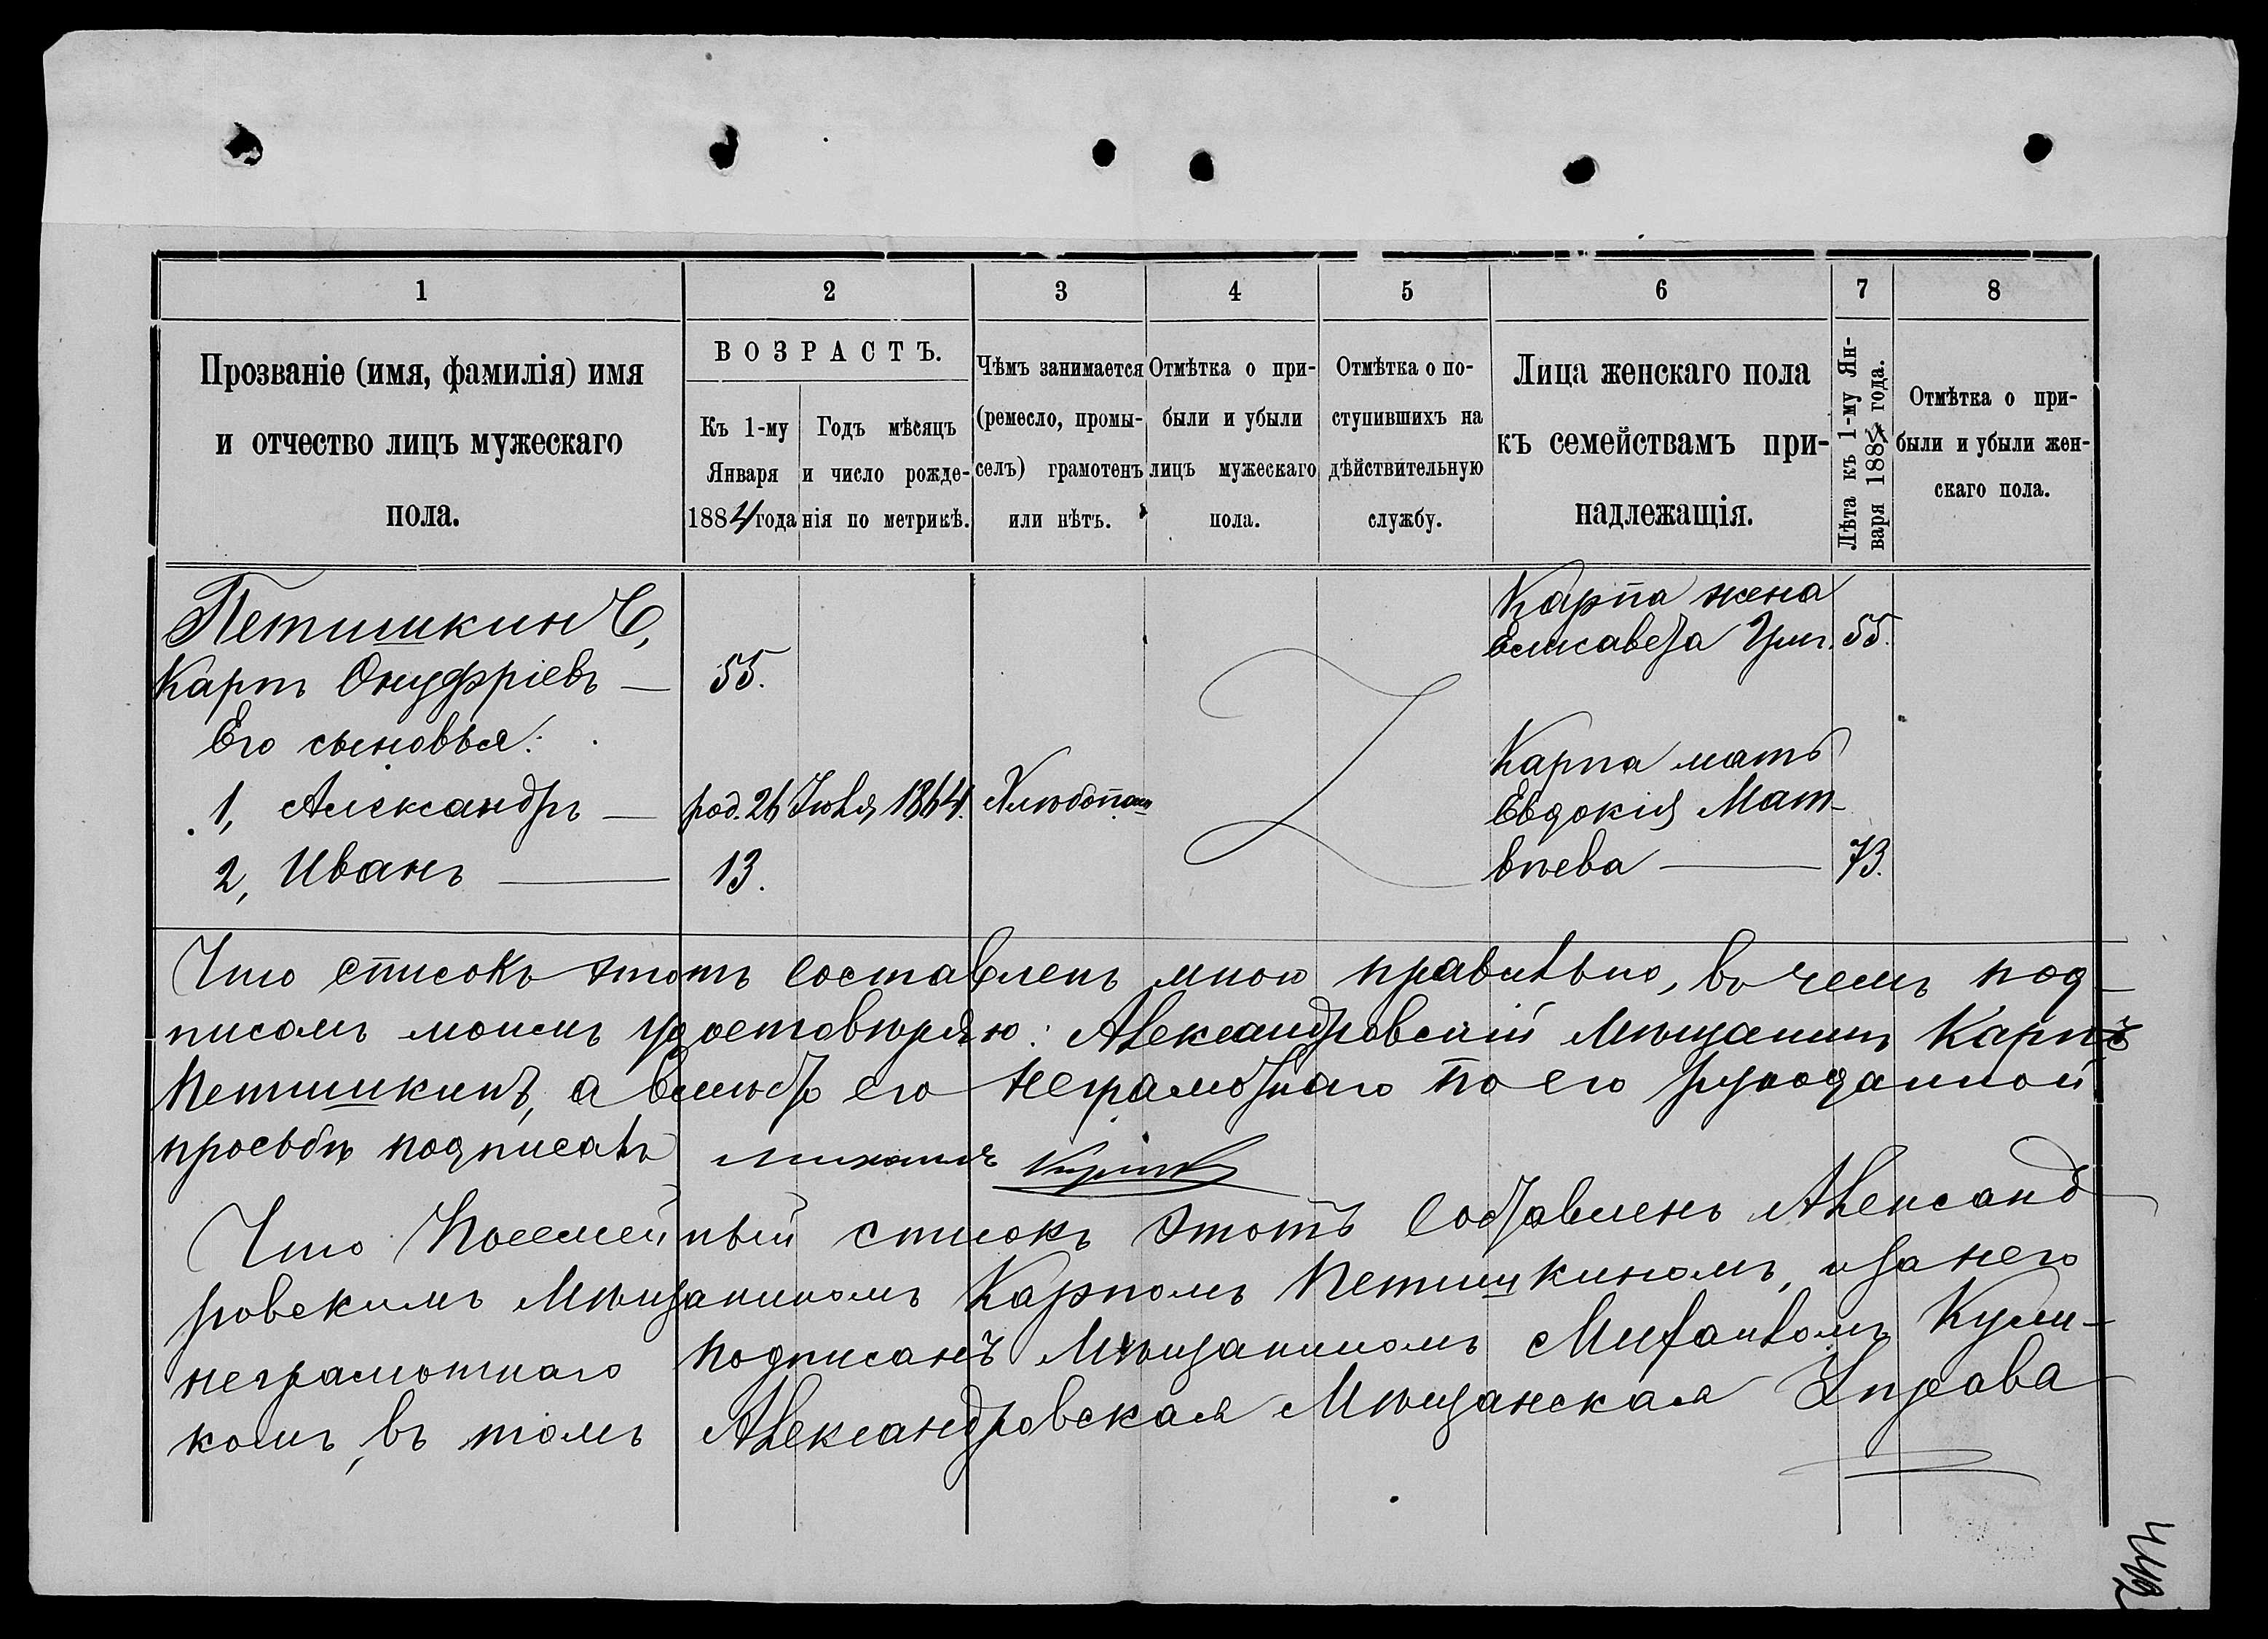 1 2 3 4 5 6 7 8
Прозваніе (имя, фамилія) имя
и отчество лицъ мужескаго
пола.
ВОЗРАСТЪ.
Къ 1-му
Января
1884 года
Годъ мѣсяцъ
и число рожде-
нія по метрикѣ.
Чѣмъ занимается
(ремесло, промы-
селъ) грамотенъ
или нѣтъ.
Отмѣтка о при-
были и убыли
лицъ мужескаго
пола.
Отмѣтка о по-
ступившихъ на
дѣйствительную
службу.
Лица женскаго пола
къ семействамъ при-
надлежащія.
Лѣта къ 1-му Ян-
варя 1884 года.
Отмѣтка о при-
были и убыли жен-
скаго пола.
Петишкинъ,
Карпъ Онуфріевъ — 55.
Его сыновья:
1, Александръ — род. 26 Іюля 1864. Хлѣбопаш
2, Иванъ — 13.
Карпа жена
Елисавета Григ. 55.
Карпа мать
Евдокія Мат-
вѣева — 73.
Что списокъ этотъ составленъ мною правильно, въ чемъ под-
писомъ моимъ удостовѣряю: Александровскій Мѣщанинъ Карпъ
Петишкинъ, а вмѣсто его неграмотнаго по его рукоданной
просьбѣ подписалъ Михаилъ Куликъ
Что Посемейный списокъ этотъ составленъ Александ-
ровскимъ Мѣщаниномъ Карпомъ Петишкиномъ, и за него
неграмотнаго подписанъ Мѣщаниномъ Михаиломъ Кули-
комъ, въ томъ Александровская Мѣщанская Управа